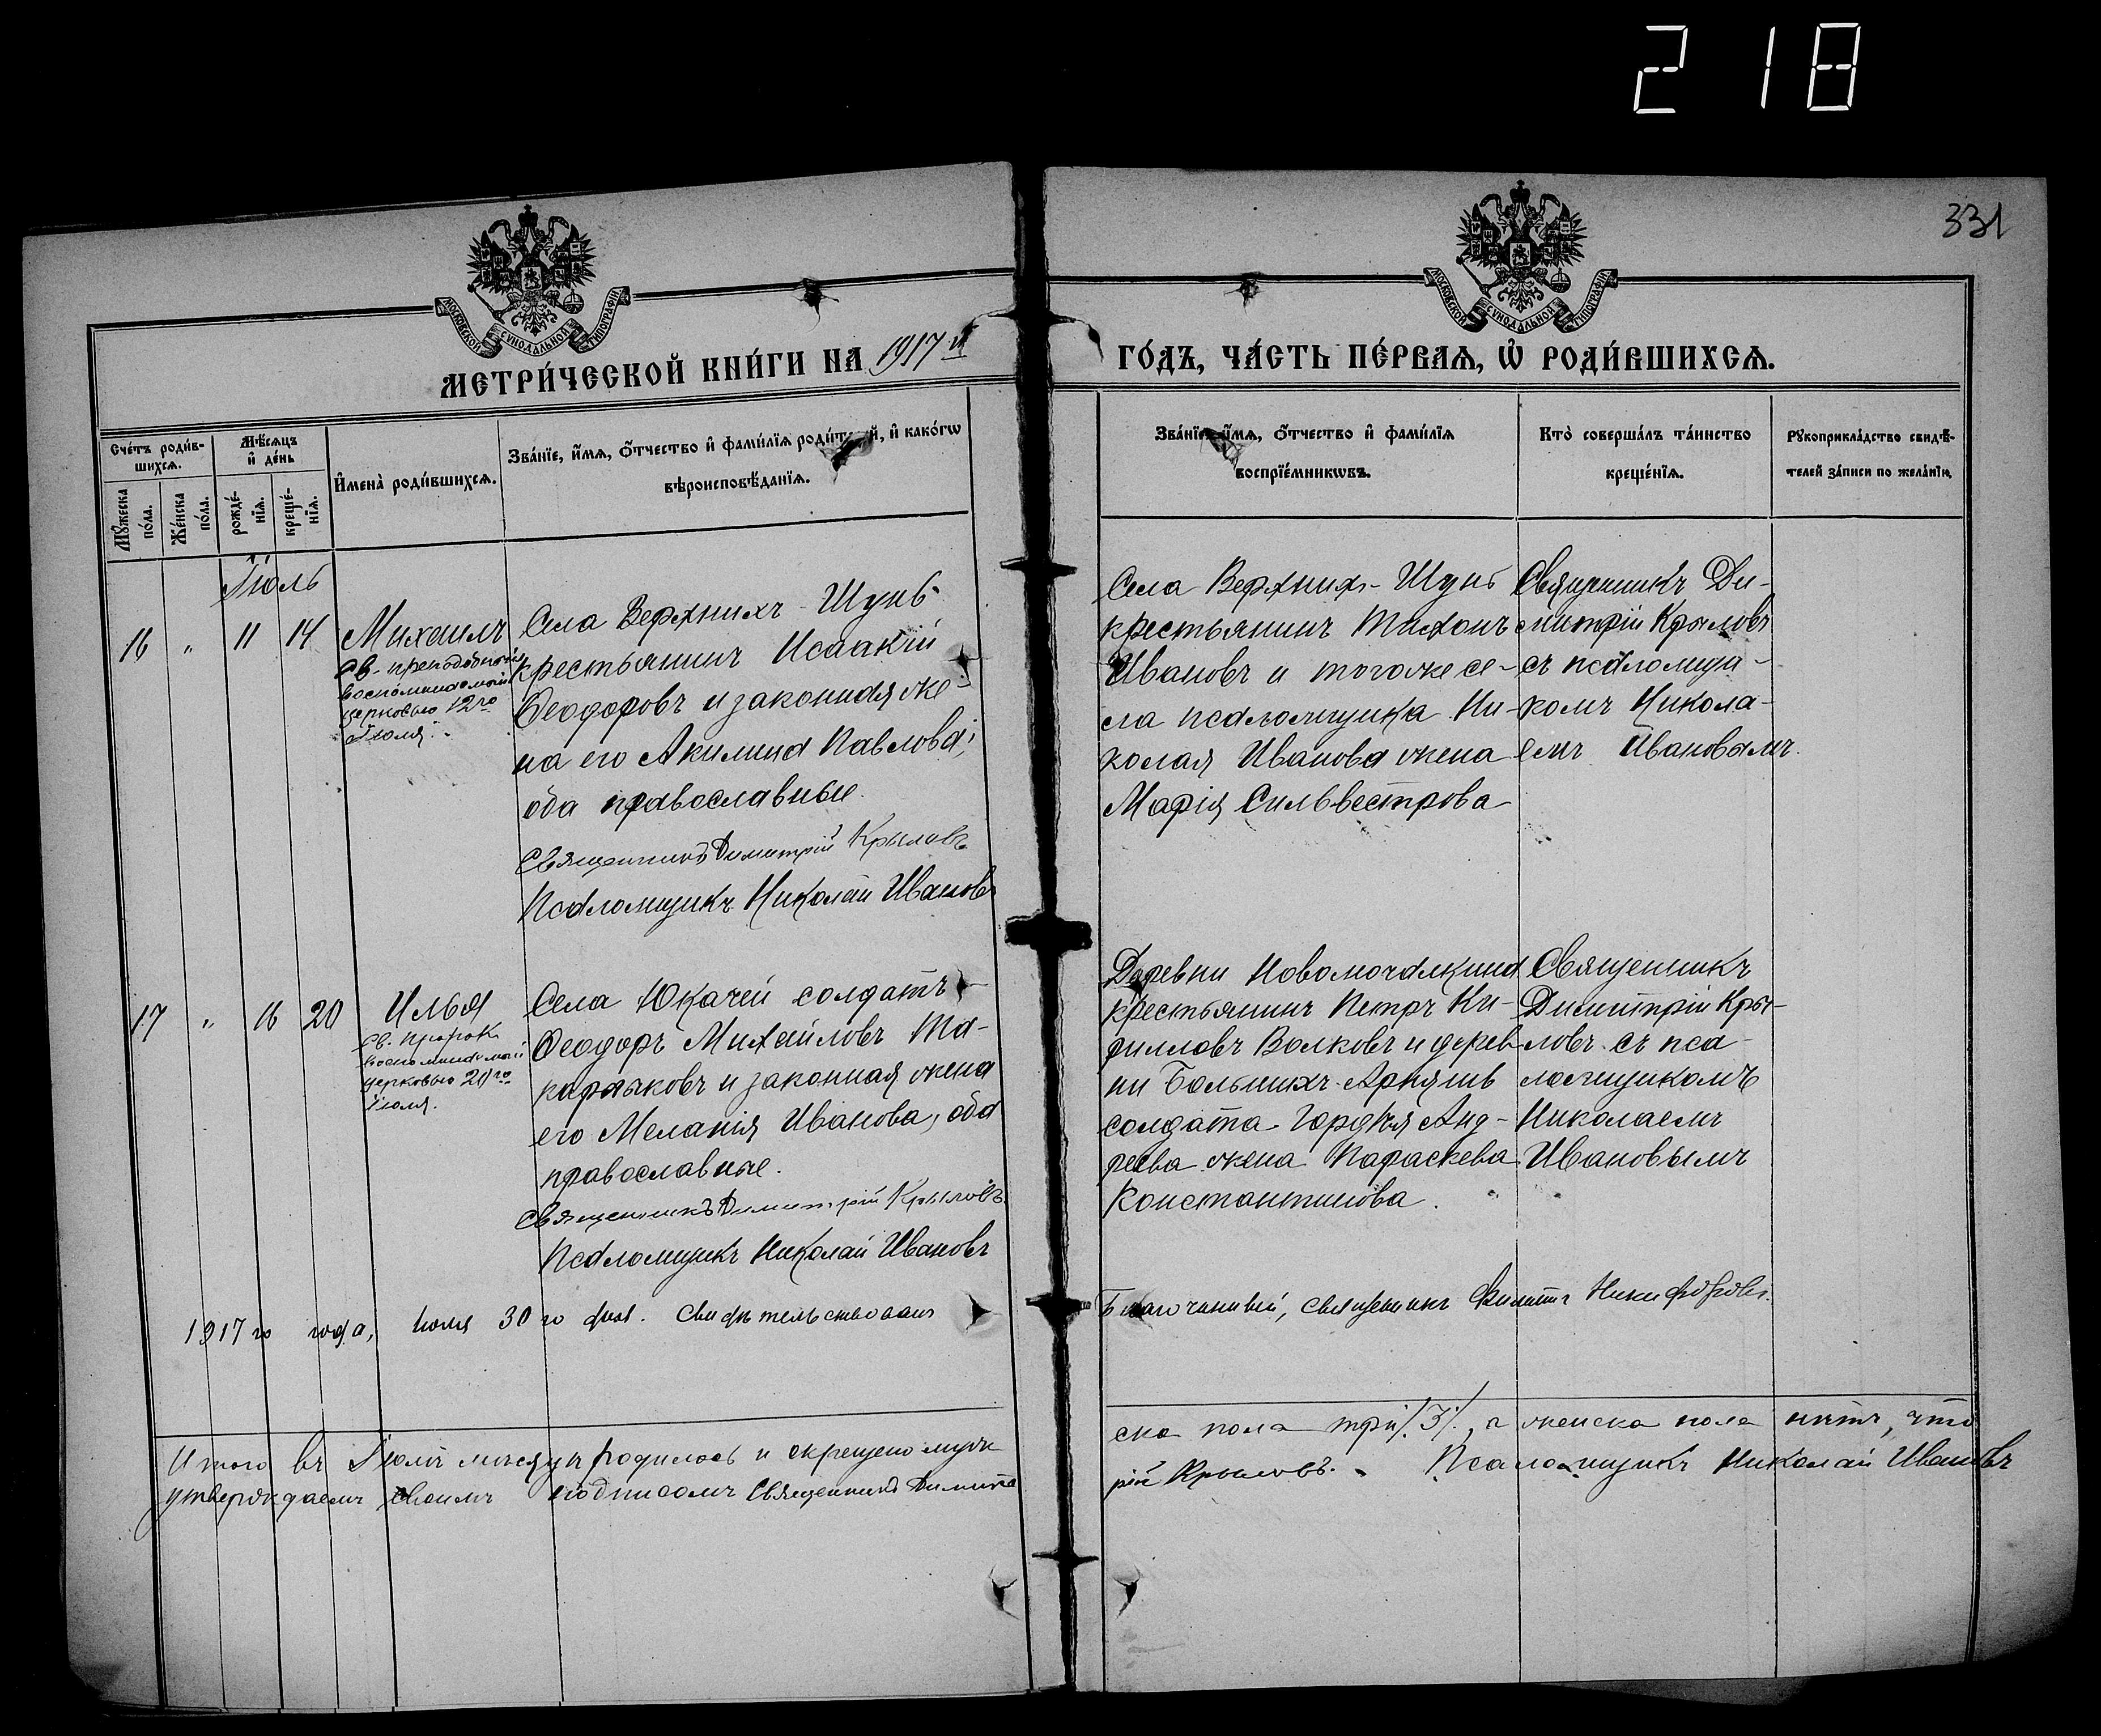 218
331
МОСКОВСКОЙ СѴНОДАЛЬНОЙ ТИПОГРАФІИ
МОСКОВСКОЙ СѴНОДАЛЬНОЙ ТИПОГРАФІИ
МЕТРИ́ЧЕСКОЙ КНИ́ГИ НА 1917 й
ГО́ДЪ, ЧА́СТЬ ПЕ́РВАѦ, Ѡ҆ РОДИ́ВШИХСѦ.
Сче́тъ роди́в-
шихсѧ.
Мѣ́сѧцъ
и҆ де́нь
Мꙋ́жеска
по́ла.
Же́нска
по́ла.
рожде́-
нїѧ.
креще́-
нїѧ.
И҆мена̀ роди́вшихсѧ.
Зва́нїе, и҆́мѧ, ѻ҆́тчество и҆ фами́лїѧ роди́т й, и҆ како́гѡ
вѣроисповѣ́данїѧ.
Зва́нїе, и҆́мѧ, ѻ҆́тчество и҆ фами́лїѧ
воспрїе́мникѡвъ.
Кто̀ соверша́лъ та́инство
креще́нїѧ.
Рꙋкоприкла́дство свидѣ́-
телей за́писи по жела́нїю.
Іюль
16 " 11 14
Михаилъ
св. преподобный
воспоминаемый
церковью 12го
Іюля.
Села Верхнихъ-Шунь
крестьянинъ Исаакій
Ѳеодоровъ и законная же-
на его Акилина Павлова;
оба православные.
Священникъ Димитрій Крыловъ
Псаломщикъ Николай Ивановъ
Села Верхнихъ-Шунь
крестьянинъ Тихонъ
Ивановъ и тогоже се-
ла псаломщика Ни-
колая Иванова жена
Марія Сильвестрова
Священникъ Ди-
митрій Крыловъ
съ псаломщи-
комъ Никола-
емъ Ивановымъ.
17 " 16 20
Илья
Св. Пророкъ
воспоминаемый
церковью 20го
Іюля.
Села Юкачей солдатъ
Ѳеодоръ Михаиловъ
и законная жена
его Меланія Иванова, оба
православные.
Священникъ Димитрій Крыловъ
Псаломщикъ Николай Ивановъ
Деревни Новомочалкина
крестьянинъ Петръ Ки-
рилловъ Волковъ и дерев-
ни Большихъ-Арняшъ
солдата Гордѣя Анд-
реева жена Параскева
Константинова.
Священникъ
Димитрій Кры-
ловъ съ пса-
ломщикомъ
Николаемъ
Ивановымъ
1917 го года, Іюля 30 го дня. Свидѣтельствовалъ
Благочинный, священникъ Филиппъ Никифоровъ.
Итого въ Іюлѣ мѣсяцѣ родилось и окрещено муже
ска пола три /.3/., а женска пола нѣтъ, что
утверждаемъ своимъ подписомъ Священникъ Димит
рій Крыловъ. Псаломщикъ Николай Ивановъ